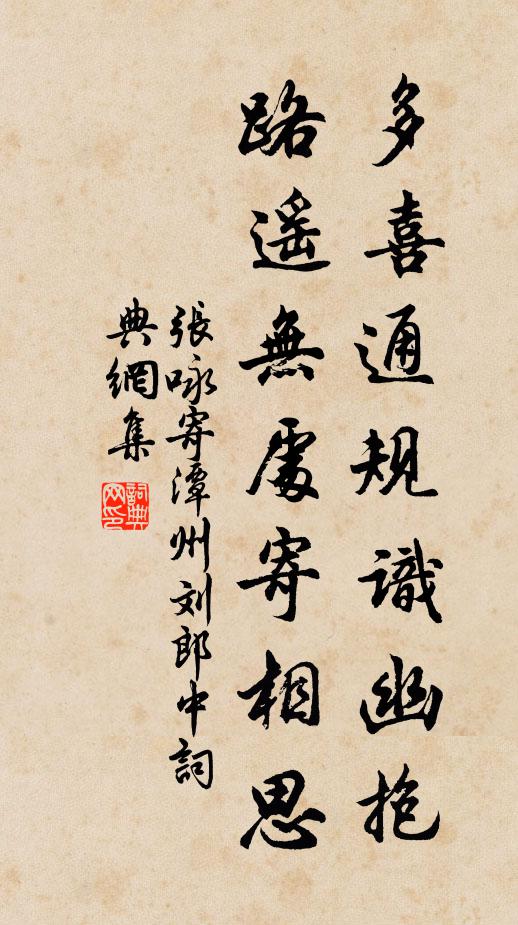 多喜通規識幽抱
路遥無處寄相思
張咏寄潭州刘郎中詞
典網集
詞典网印